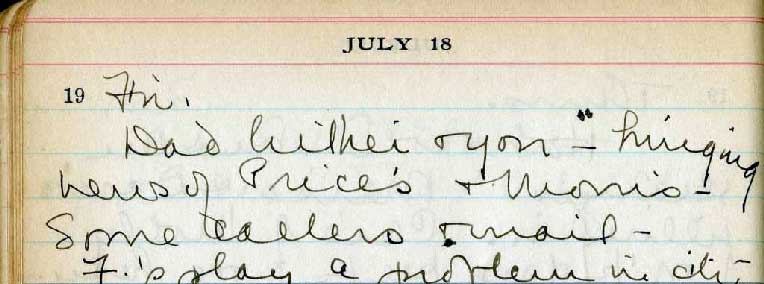 JULY 18
19 Fri.
Dad hither & yon - bringing
news of Price's & Morris -
Some callers & mail -
F.'s play a problem in city